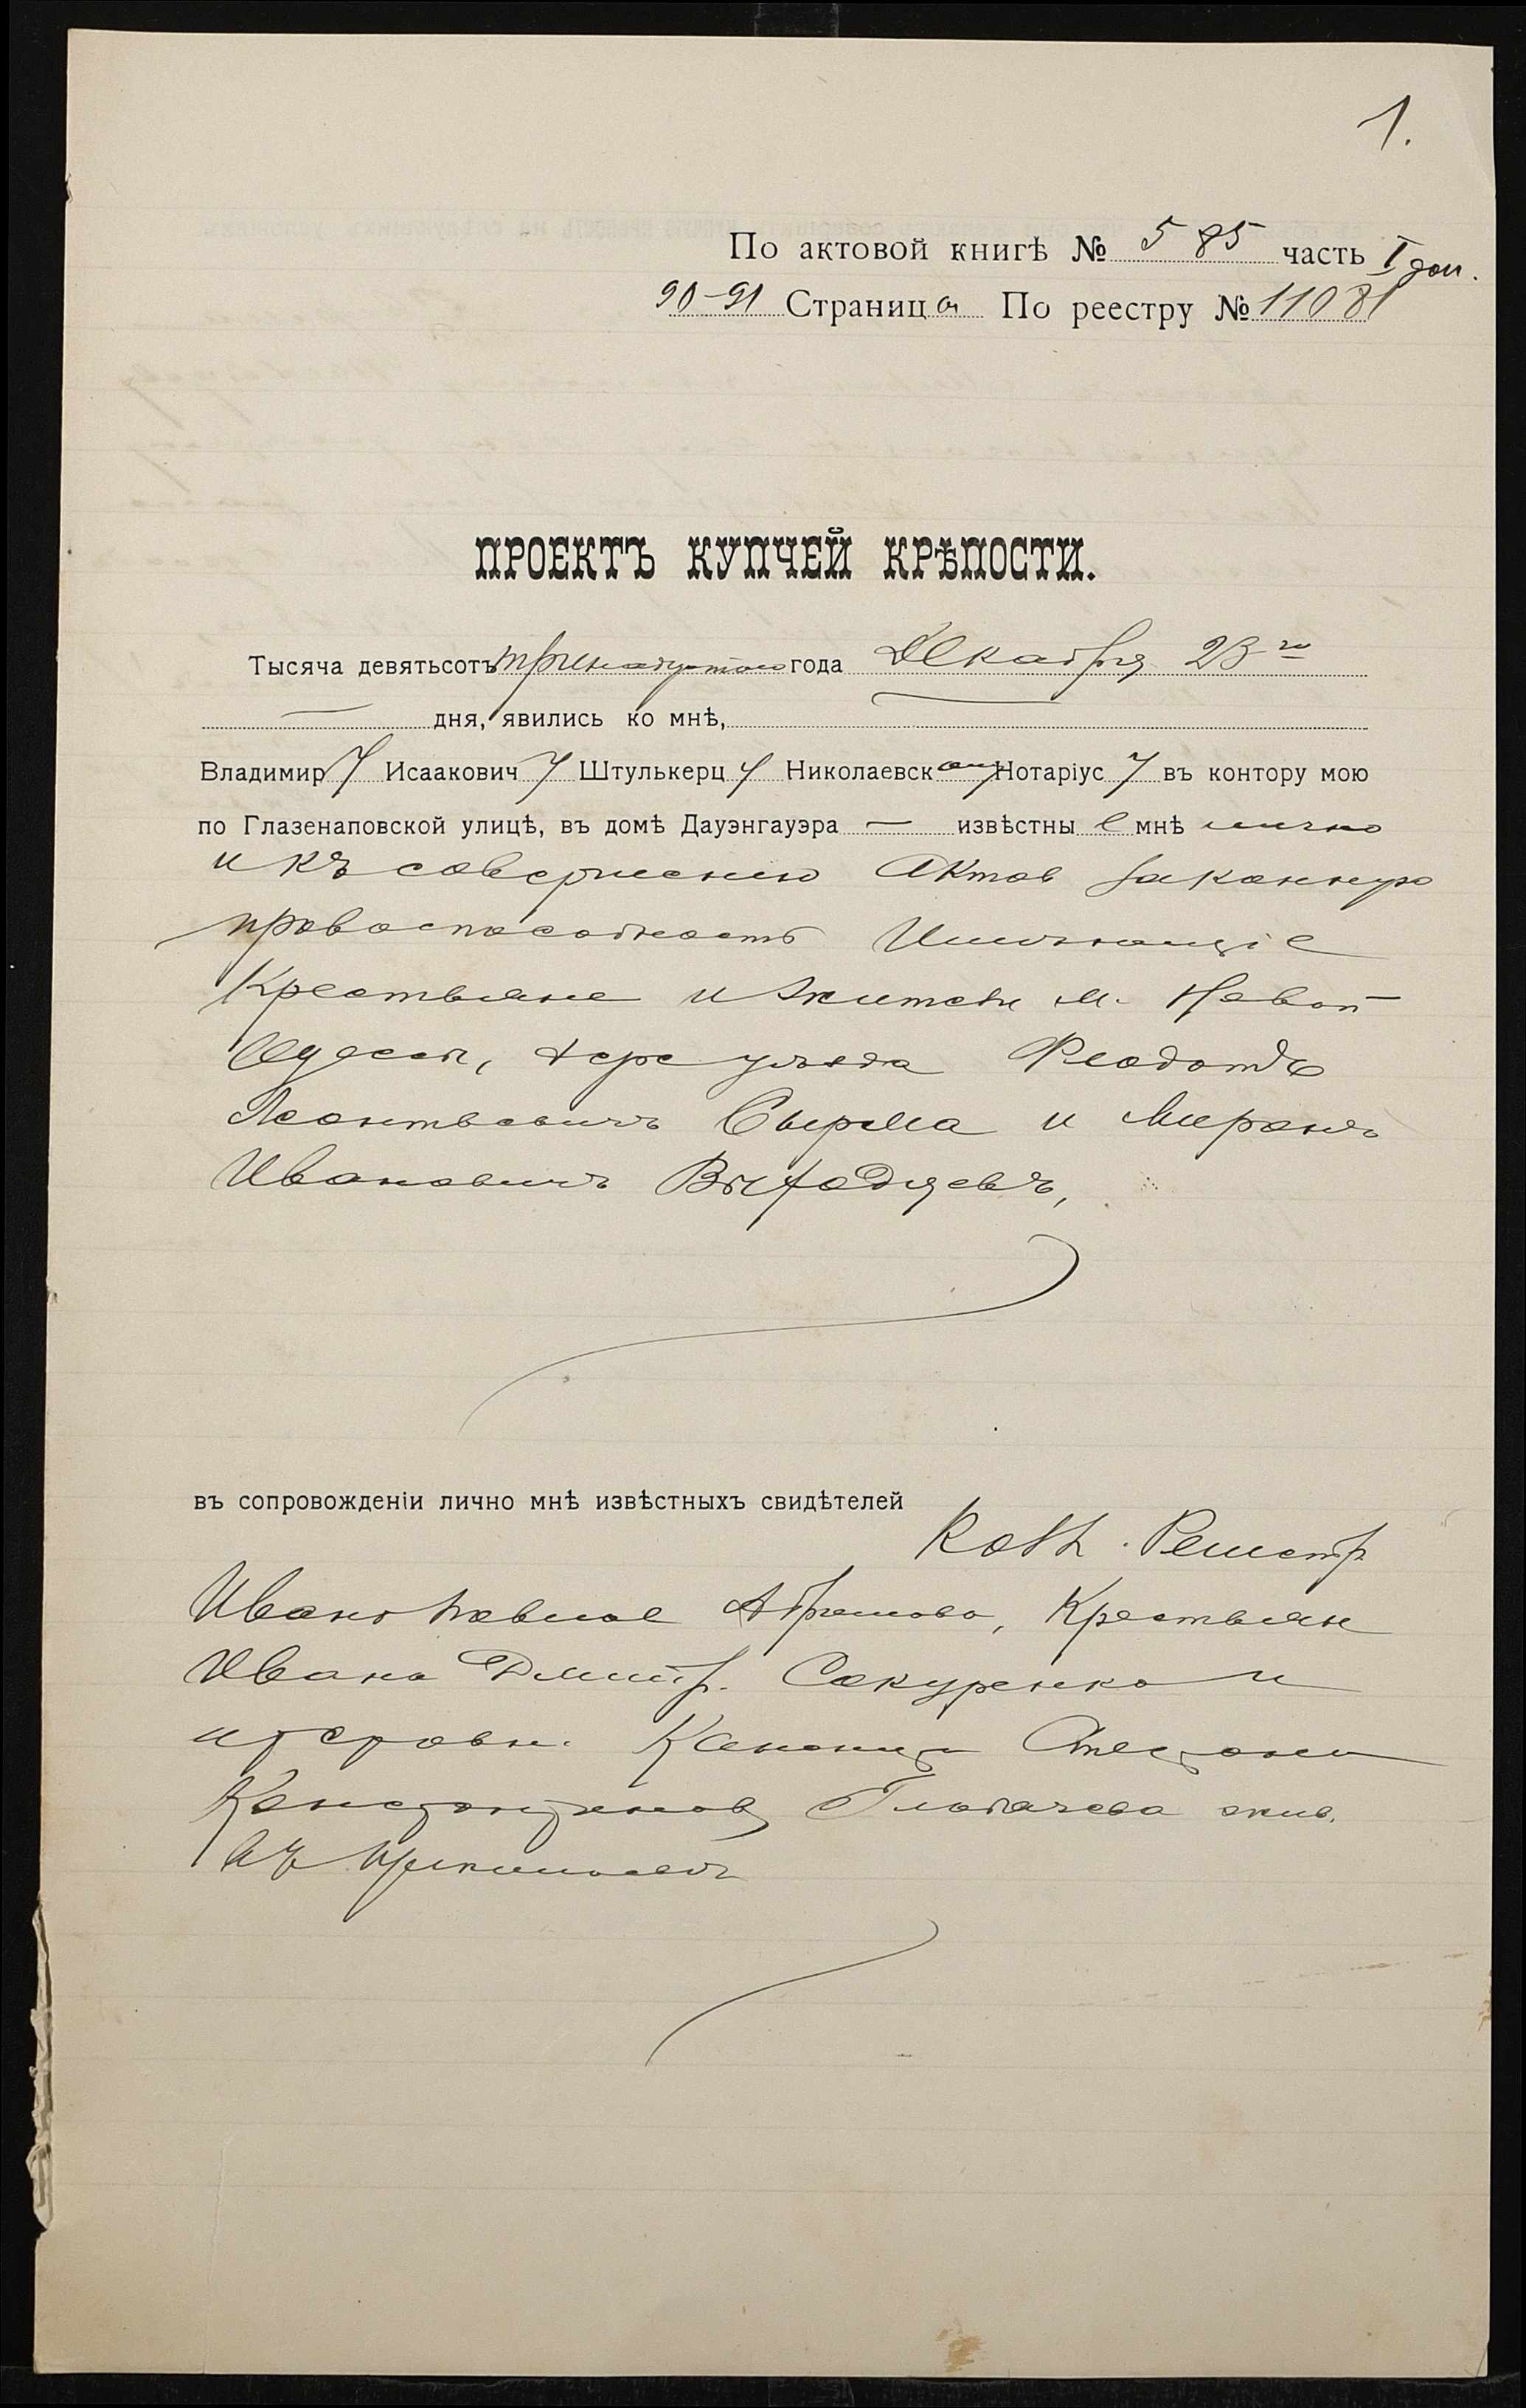 1.
По актовой книгѣ № 585 часть I доп.
90-91 Страница По реестру № 11081
ПРОЕКТЪ КУПЧЕЙ КРѢПОСТИ.
Тысяча девятьсотъ тринадцатого года Декабря 23 го
дня, явились ко мнѣ,
Владимир у Исаакович у Штулькерц у Николаевскому Нотаріус у въ контору мою
по Глазенаповской улицѣ, въ домѣ Дауэнгауэра — извѣстные мнѣ лично
и къ совершенію актов законную
правоспособность имѣющіе
Крестьяне и жители м. Новой
Одессы, Херс уѣзда Феодотъ
Леонтьевичъ Сырма и Миронъ
Ивановичъ Выходцевъ,
въ сопровожденіи лично мнѣ извѣстныхъ свидѣтелей
Ивана Абрамова, Крестьян
Ивана Дмитр. Сокуренко и
Константинов жив.
въ Николаевѣ